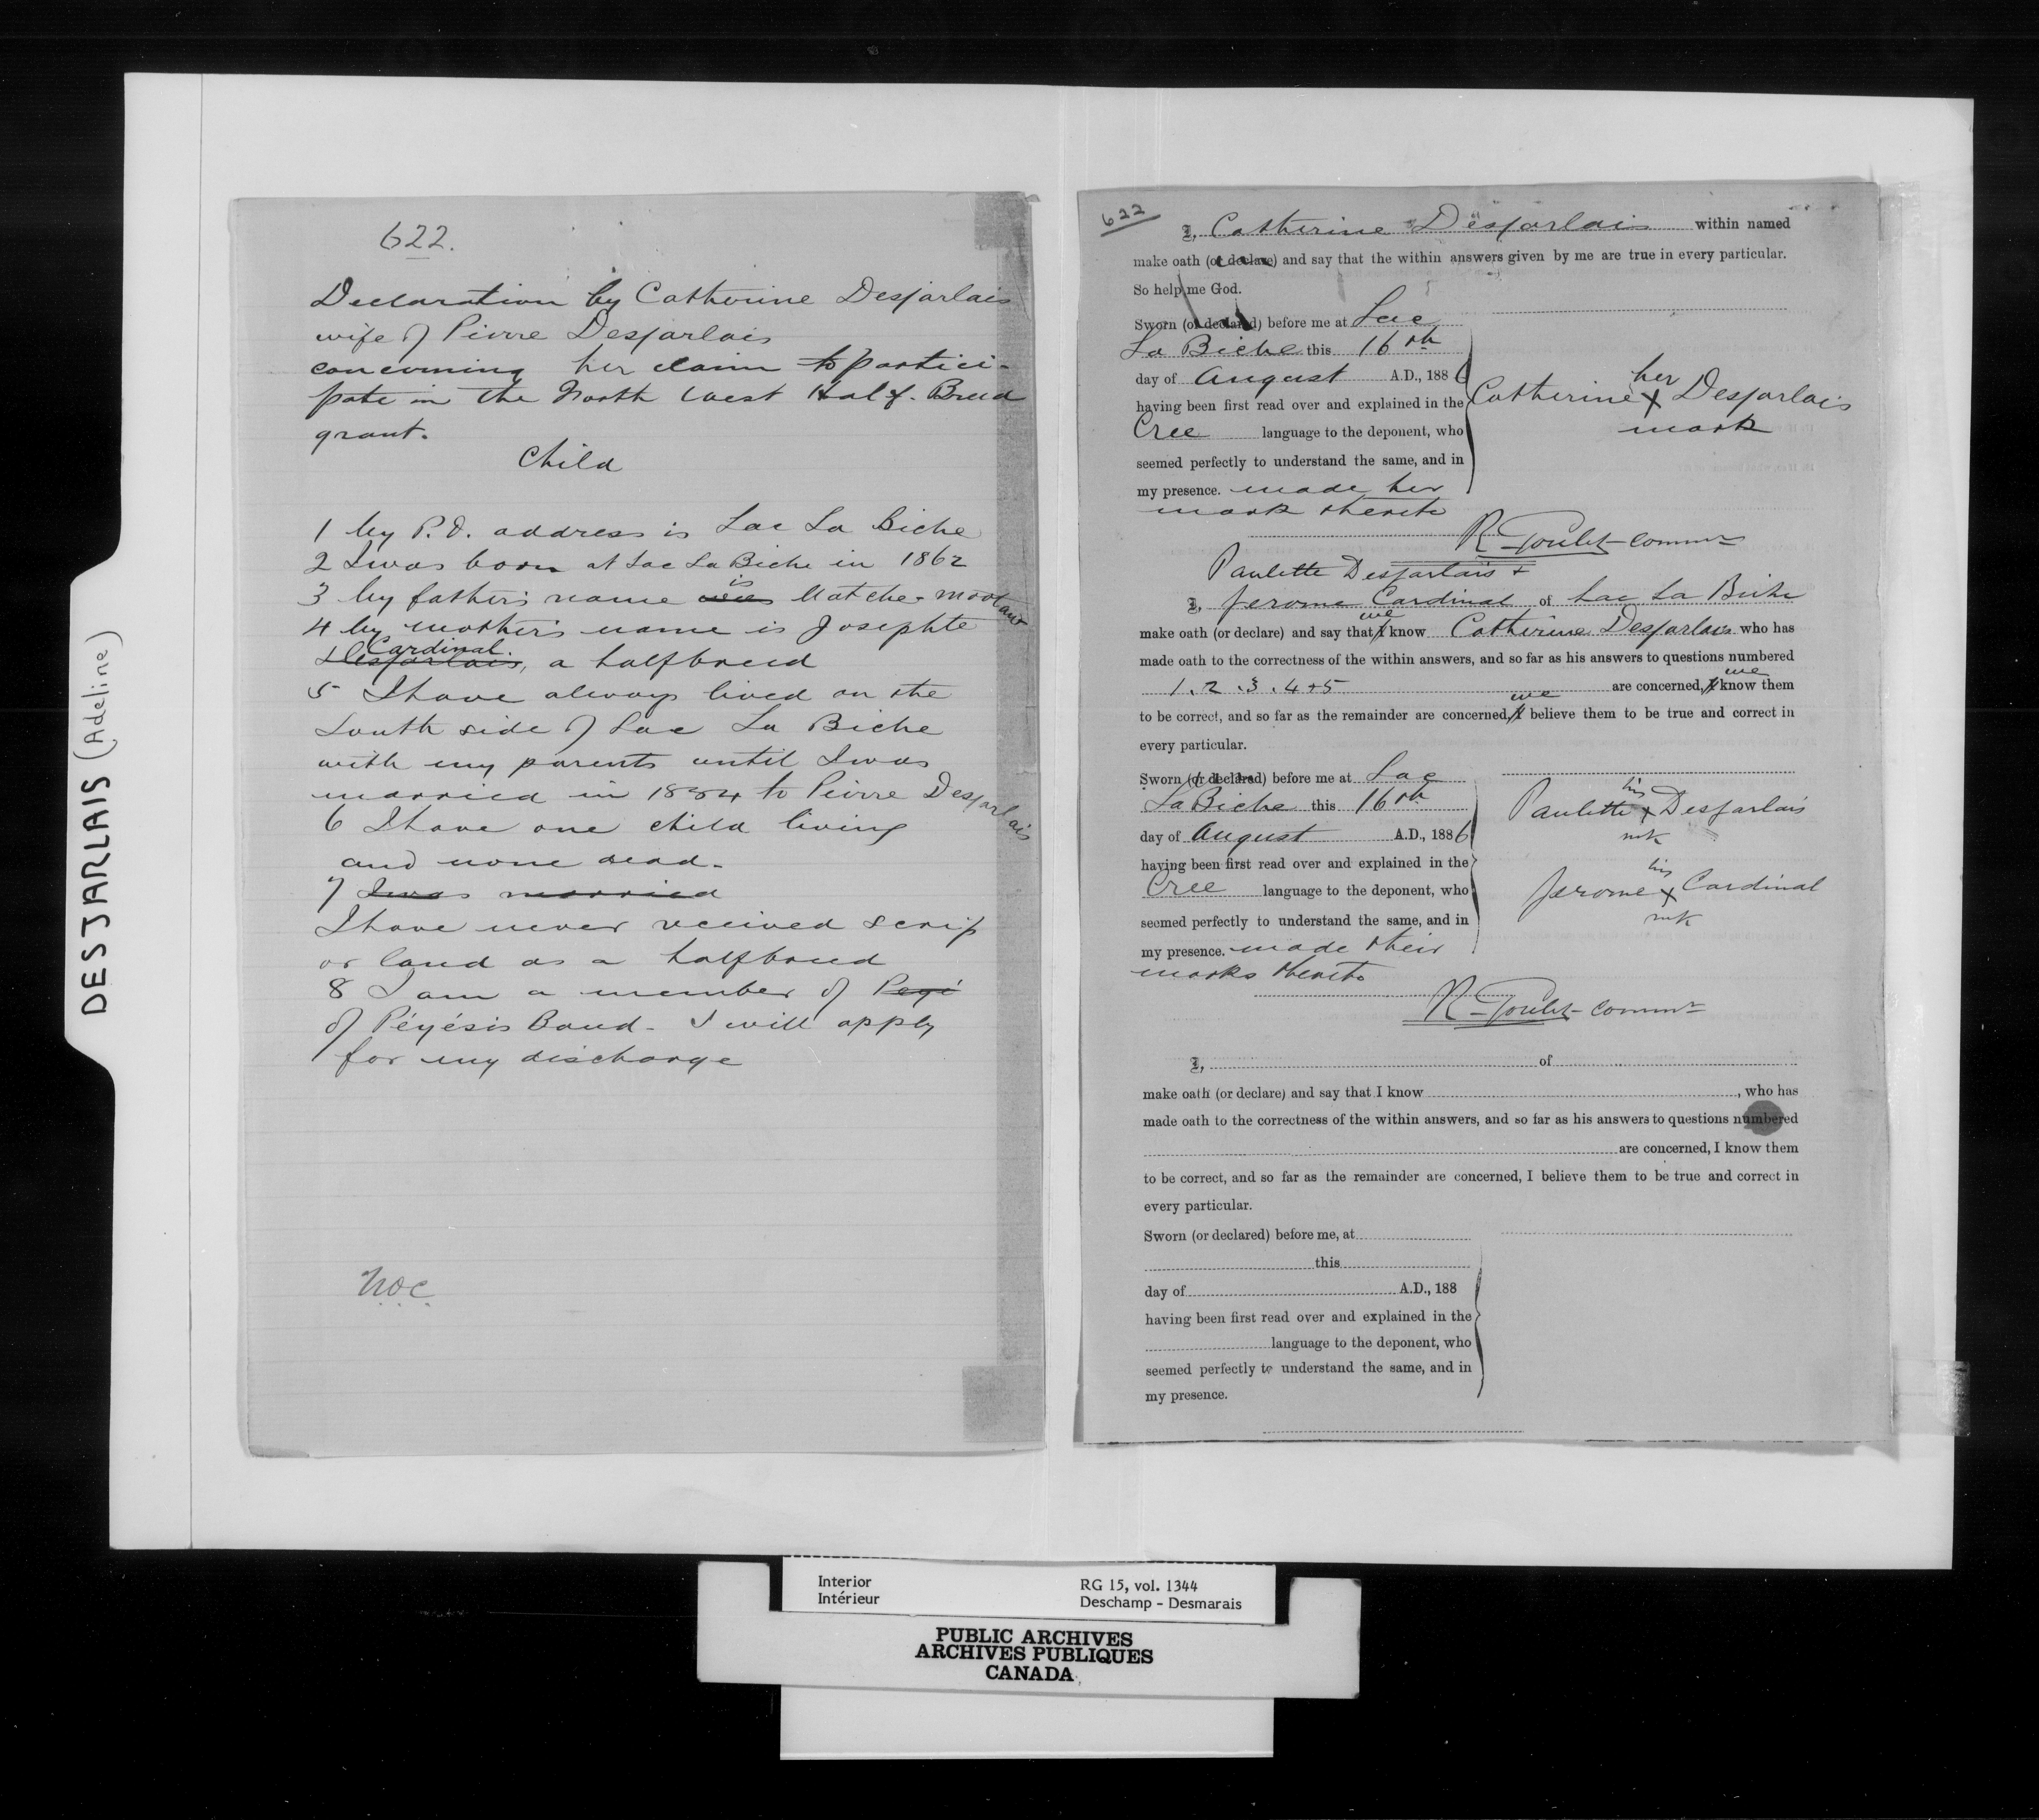 DESJARLAIS (Adeline)
622.
Declaration by Catherine Desjarlais
wife of Pierre Desjarlais
concerning her claim to partici-
pate in the North West Half-Breed
grant.
Child
1 My P.O. address is Lac La Biche
2 I was born at Lac La Biche in 1862
3 My father's name is Matche-
4 My mother's name is Josephte
Cardinal.
Desjarlais, a halfbreed
5 I have always lived on the
South side of Lac La Biche
with my parents until I was
married in 1884 to Pierre Desjarlais
6 I have one child living
and none dead.
7 I was married
I have never received scrip
or land as a halfbreed
8 I am a member of Peyé
of Péyésis Band - I will apply
for my discharge
622
I, Catherine Desjarlais within named
make oath (or declare) and say that the within answers given by me are true in every particular.
So help me God.
Sworn (or declared) before me at Lac
La Biche this 16th
day of August A.D., 1886
having been first read over and explained in the
Cree language to the deponent, who
seemed perfectly to understand the same, and in
my presence. made her
mark thereto
her
Catherine X Desjarlais
mark
R Goulet Commr
Paulette Desjarlais +
I, Jerome Cardinal of Lac La Biche
make oath (or declare) and say that I we know Catherine Desjarlais who has
made oath to the correctness of the within answers, and so far as his answers to questions numbered
1. 2. 3. 4 + 5 are concerned, I we know them
to be correct, and so far as the remainder are concerned, I we believe them to be true and correct in
every particular.
Sworn (or declared) before me at Lac
La Biche this 16th
day of August A.D., 1886
having been first read over and explained in the
Cree language to the deponent, who
seemed perfectly to understand the same, and in
my presence. made their
marks thereto
his
Paulette X Desjarlais
mk
his
Jerome X Cardinal
mk
R Goulet Commr
I, of
make oath (or declare) and say that I know , who has
made oath to the correctness of the within answers, and so far as his answers to questions numbered
are concerned, I know them
to be correct, and so far as the remainder are concerned, I believe them to be true and correct in
every particular.
Sworn (or declared) before me, at
this
day of A.D., 188
having been first read over and explained in the
language to the deponent, who
seemed perfectly to understand the same, and in
my presence.
Interior
Intérieur
RG 15, vol. 1344
Deschamp - Desmarais
PUBLIC ARCHIVES
ARCHIVES PUBLIQUES
CANADA